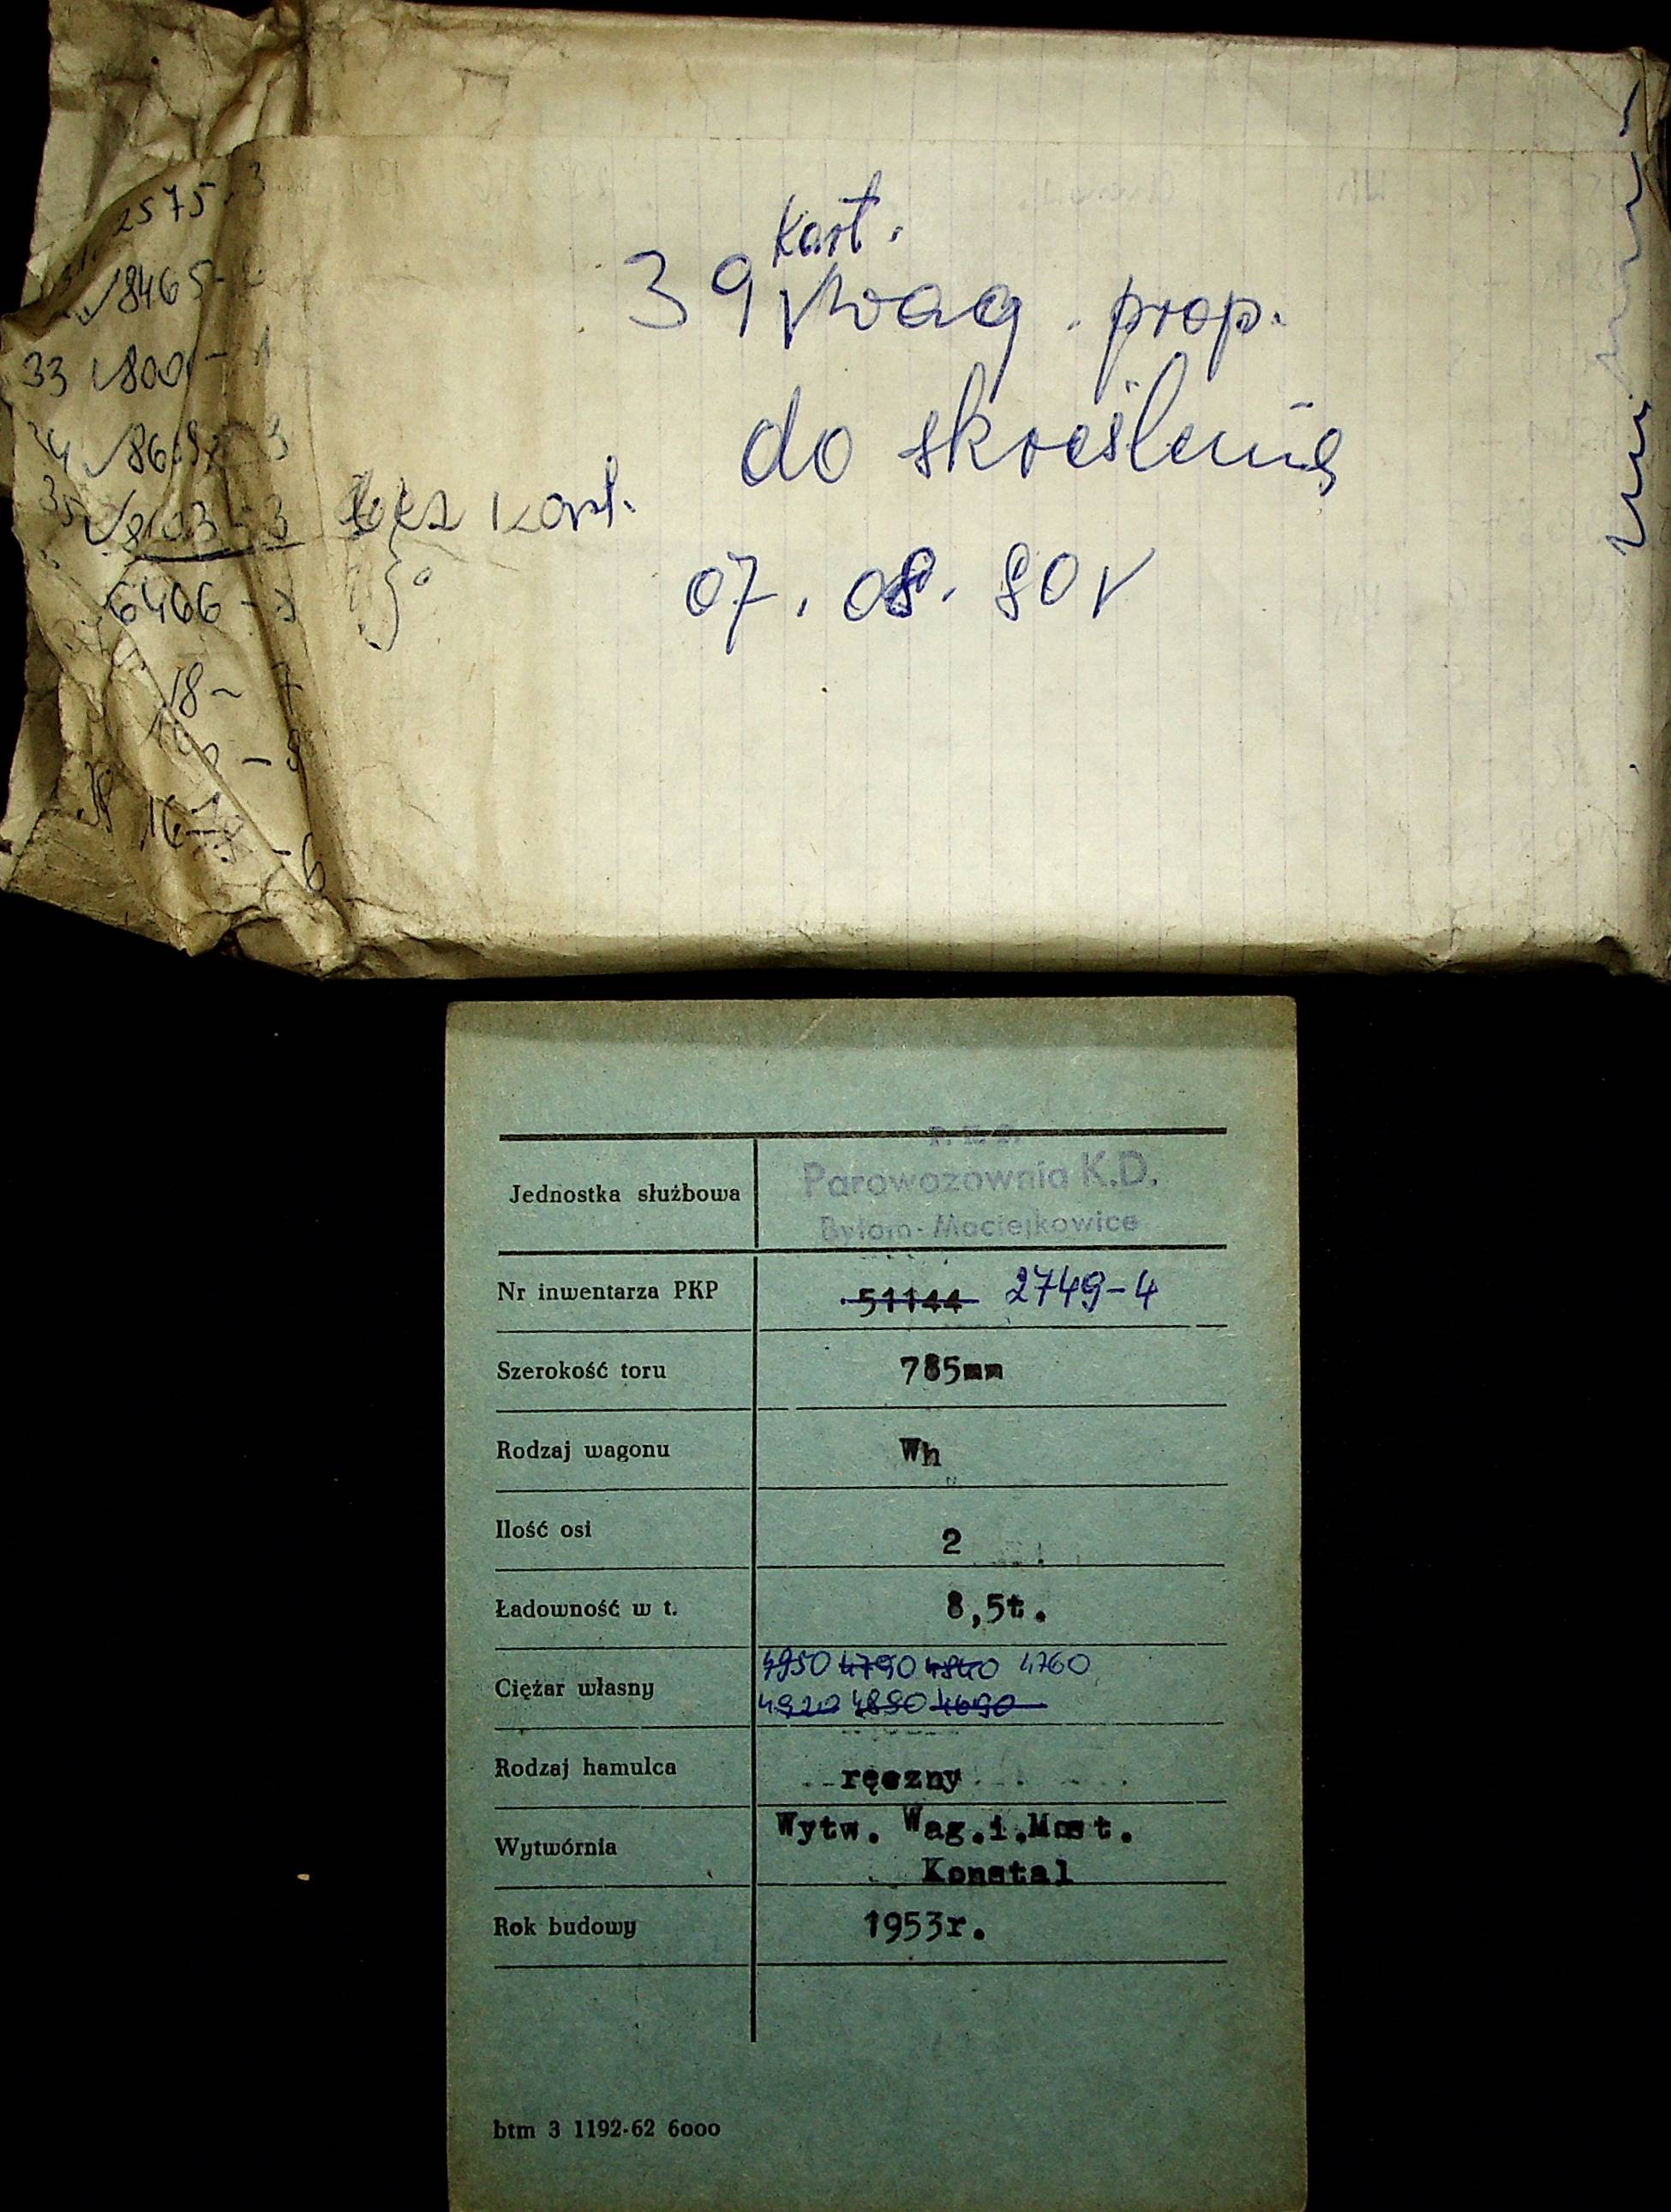 2575-3
18465-
33 800 - 1
8103-3
6466 -
18- 7
16-
-6
kart.
39 wag. prop.
do skreślenia
bez kart.
07. 08. 90r
P. K. P.
Parowozownia K.D.
Jednostka służbowa
Bytom-Maciejkowice
Nr inwentarza PKP 51144 2749-4
Szerokość toru 785mm
Rodzaj wagonu Wh
Ilość osi 2
Ładowność w t. 8,5t.
4950 4790 4840 4760
Ciężar własny
4920 4890 4690
Rodzaj hamulca ręczny
Wytw. Wag.i.Most.
Wytwórnia
Konstal
Rok budowy 1953r.
btm 3 1192-62 6000